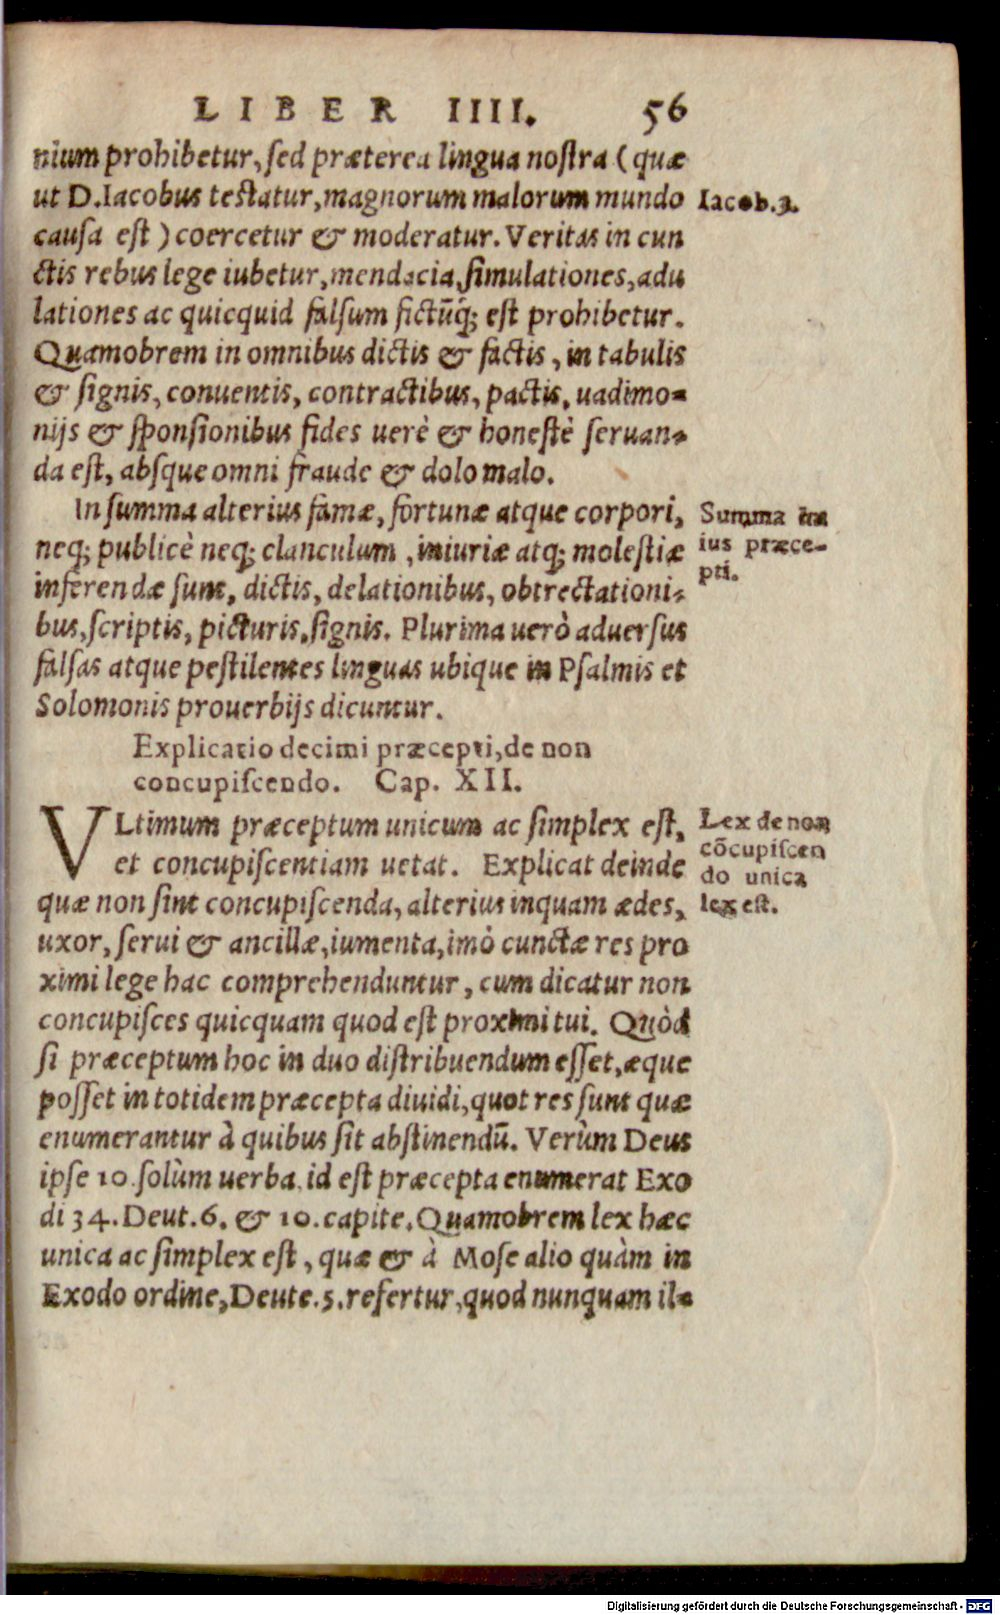 LIBER IIII. 56
nium prohibetur, sed præterea lingua nostra (quæ
ut D. Iacobus testatur, magnorum malorum mundo
Iacob.3.
causa est) coercetur & moderatur. Veritas in cun
ctis rebus lege iubetur, mendacia, simulationes, adu
lationes ac quicquid falsum fictūq; est prohibetur.
Quamobrem in omnibus dictis & factis, in tabulis
& signis, conuentis, contractibus, pactis, uadimo=
nijs & sponsionibus fides uerè & honestè seruan=
da est, absque omni fraude & dolo malo.
In summa alterius famæ, fortunæ atque corpori,
neq; publicè neq; clanculum, iniuriæ atq; molestiæ
inferendæ sunt, dictis, delationibus, obtrectationi=
bus, scriptis, picturis, signis. Plurima uerò aduersus
falsas atque pestilentes linguas ubique in Psalmis et
Solomonis prouerbijs dicuntur.
Summa
ius præce-
pti.
Explicatio decimi præcepti, de non
concupiscendo. Cap. XII.
VLtimum præceptum unicum ac simplex est,
et concupiscentiam uetat. Explicat deinde
quæ non sint concupiscenda, alterius inquam ædes,
uxor, serui & ancillæ, iumenta, imò cunctæ res pro
ximi lege hac comprehenduntur, cum dicatur non
concupisces quicquam quod est proximi tui. Quòd
si præceptum hoc in duo distribuendum esset, æque
posset in totidem præcepta diuidi, quot res sunt quæ
enumerantur à quibus sit abstinendū. Verùm Deus
ipse 10. solùm uerba, id est præcepta enumerat Exo
di 34. Deut. 6. & 10. capite. Quamobrem lex hæc
unica ac simplex est, quæ & à Mose alio quàm in
Exodo ordine, Deute. 5. refertur, quod nunquam il=
Lex de non
cōcupiscen
do unica
lex est.
Digitalisierung gefördert durch die Deutsche Forschungsgemeinschaft - DFG